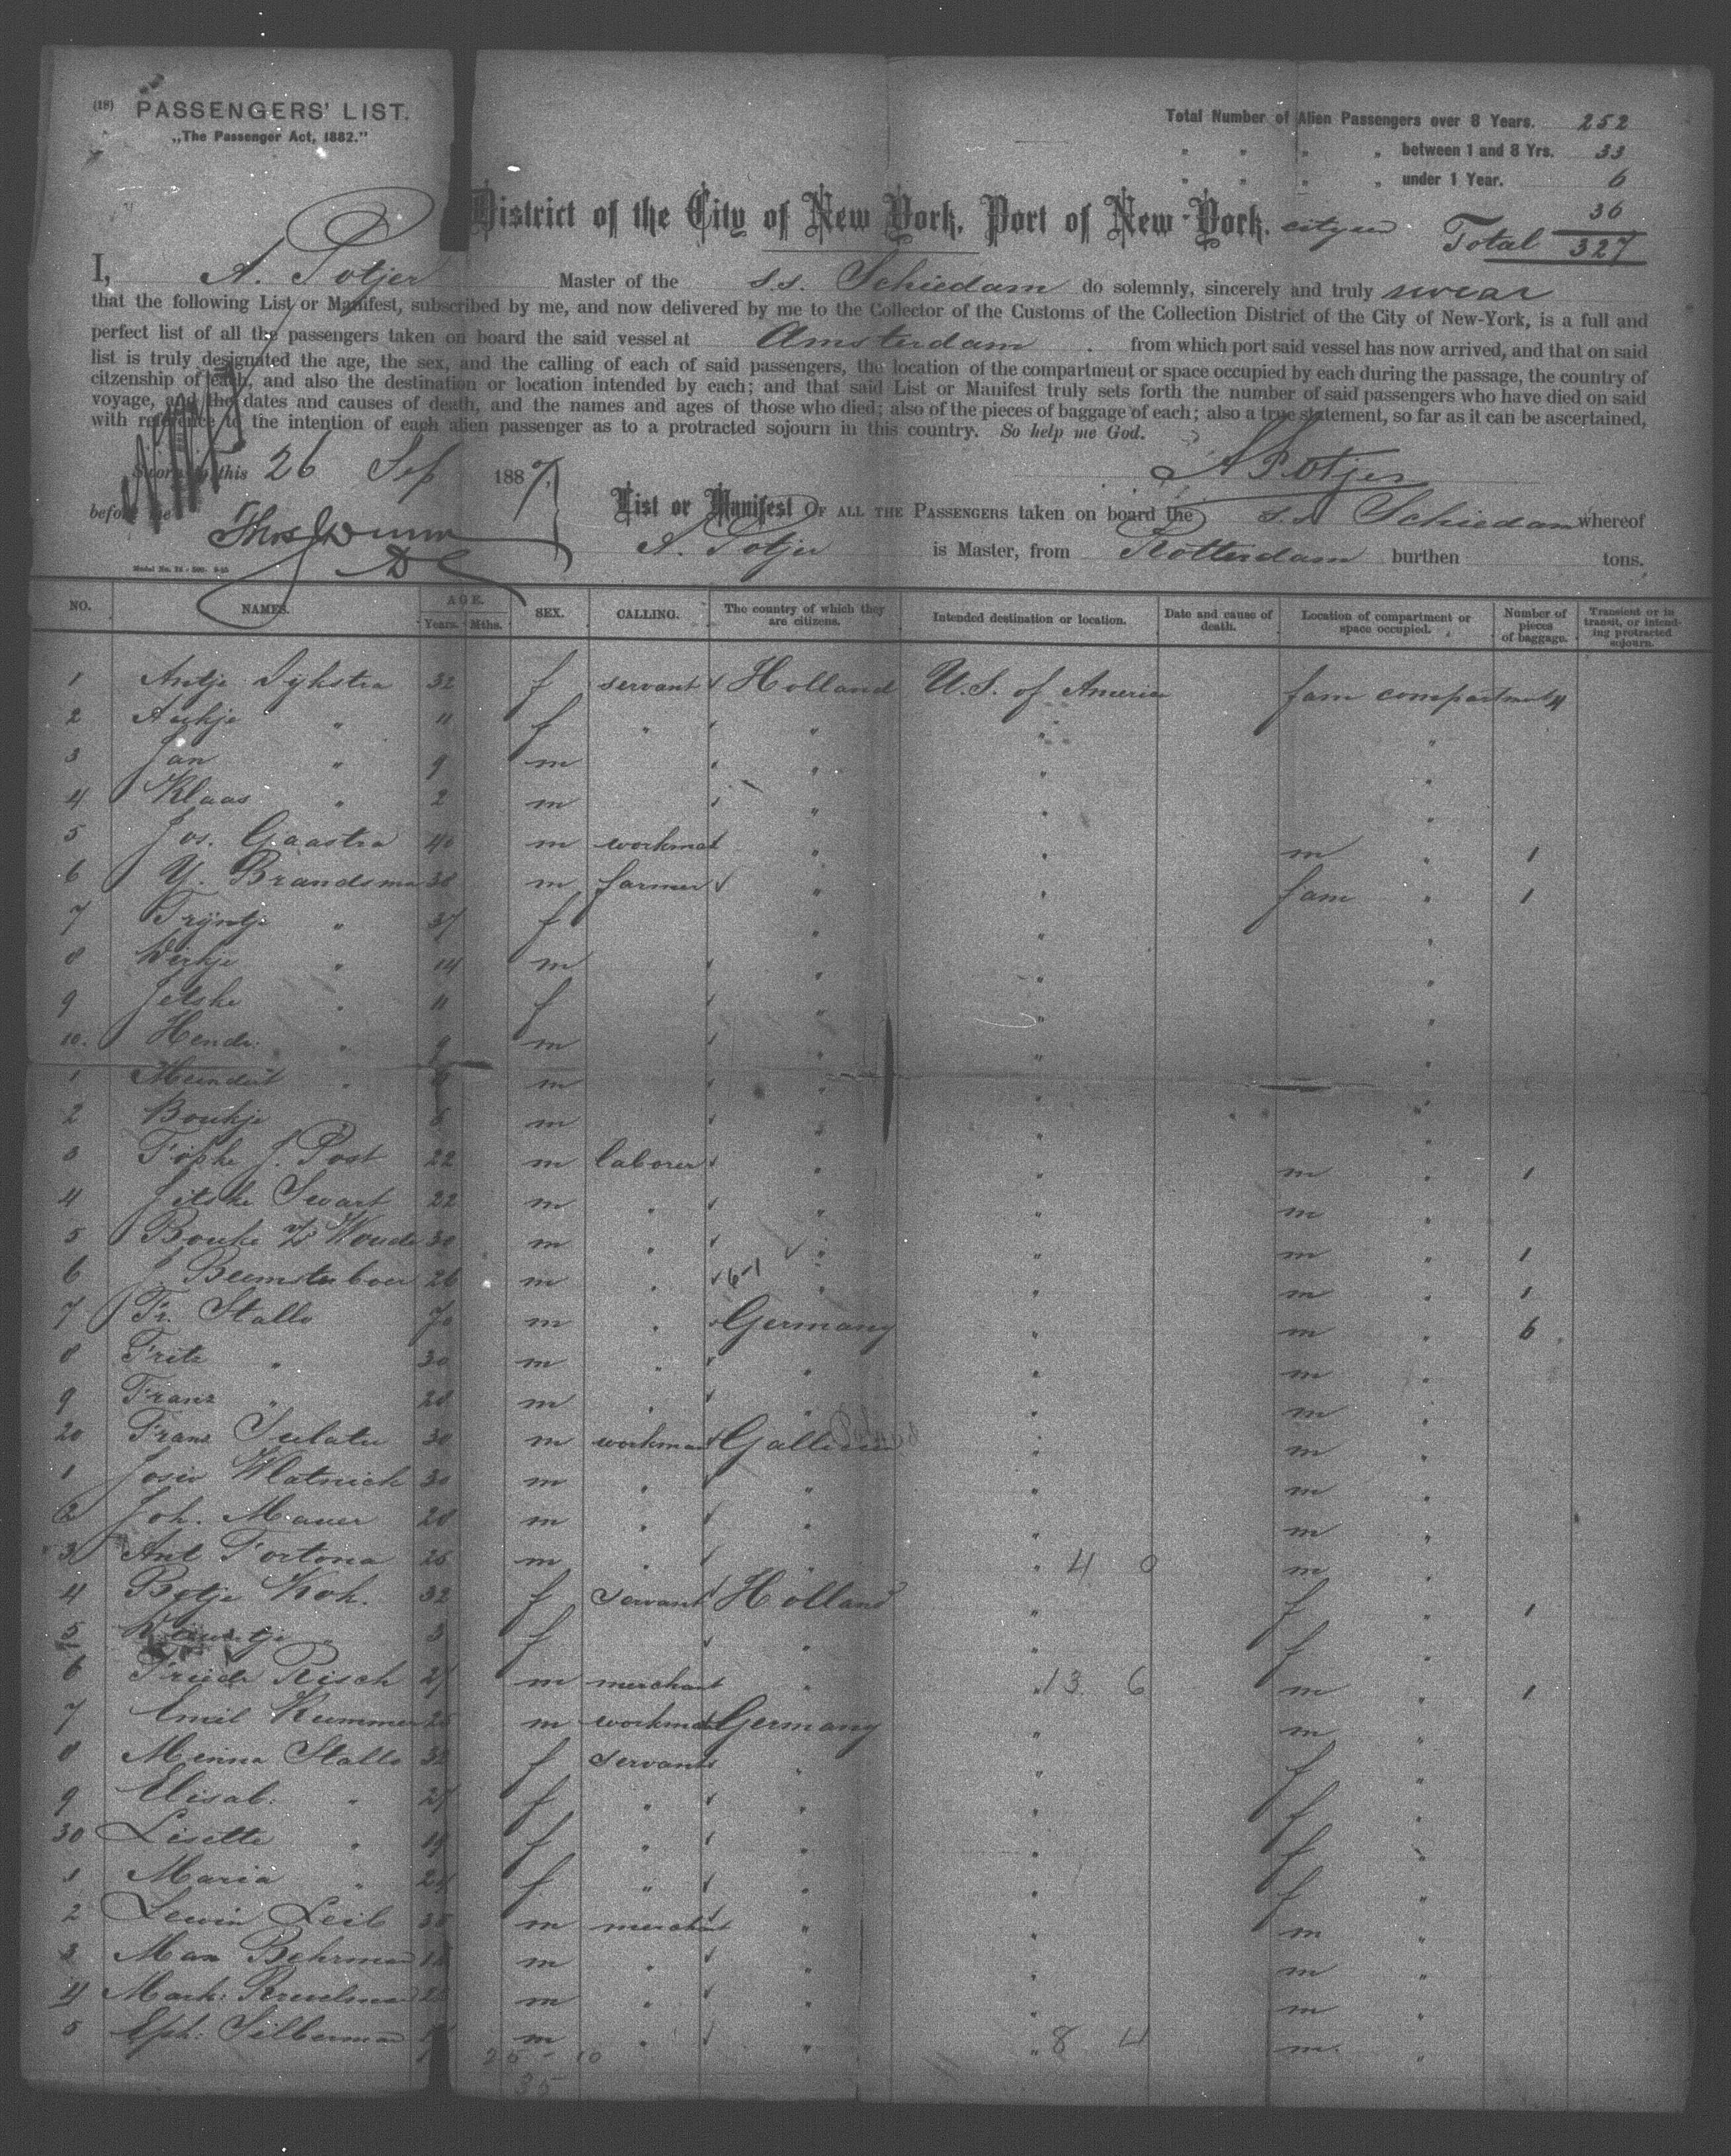 (18) PASSENGERS' LIST.
„The Passenger Act, 1882."
Total Number of Alien Passengers over 8 Years. 252
" " " „ between 1 and 8 Yrs. 33
" " " „ under 1 Year. 6
36
District of the City of New York, Port of New-York. Total 327
I, A. Potjer Master of the s.s. Schiedam do solemnly, sincerely and truly swear
that the following List or Manifest, subscribed by me, and now delivered by me to the Collector of the Customs of the Collection District of the City of New-York, is a full and
perfect list of all the passengers taken on board the said vessel at Amsterdam from which port said vessel has now arrived, and that on said
list is truly designated the age, the sex, and the calling of each of said passengers, the location of the compartment or space occupied by each during the passage, the country of
citzenship of each, and also the destination or location intended by each; and that said List or Manifest truly sets forth the number of said passengers who have died on said
voyage, and the dates and causes of death, and the names and ages of those who died; also of the pieces of baggage of each; also a true statement, so far as it can be ascertained,
with reference to the intention of each alien passenger as to a protracted sojourn in this country. So help me God.
Sworn to this 26 Sep 1887, A Potjer
before me Thos J Dunn
List or Manifest OF ALL THE PASSENGERS taken on board the s.s Schiedam whereof
A. Potjer is Master, from Rotterdam burthen tons.
NO. NAMES. AGE. Years. Mths. SEX. CALLING. The country of which they are citizens. Intended destination or location. Date and cause of death. Location of compartment or space occupied. Number of pieces of baggage. Transient or in transit, or intending protracted sojourn.
1 Antje Dykstra 32 f servant Holland U.S. of America fam compartment 4
2 Aukje " 11 f " " " "
3 Jan " 9 m " " "
4 Klaas " 2 m " " "
5 Jos. Gaastra 40 m workman " " m " 1
6 Y. Brandsma 38 m farmer " " fam " 1
7 Trijntje " 37 f " " "
8 " 14 m " " "
9 Jetske " 11 f " " "
10. Hendr: " 9 m " " "
1 Meindert " m " " "
2 Boukje 6 m " " "
3 Fopke J. Post 22 m laborer " " m " 1
4 Jetske Swart 22 m " " " m "
5 Bouke Woude 30 m " " " m " 1
6 J. Beemsterboer 26 m " 6-1 " " m " 1
7 Fr. Stallo 70 m " Germany " m " 6
8 Fritz " 30 m " " " m "
9 Franz " 28 m " " " m "
20 Franz 30 m workman Gallicia " m "
1 Wlatnick 30 m " " " m "
2 Joh. Mauer 28 m " " " m "
3 Ant Fortona 25 m " " " 4 0 m "
4 Botje Kok. 32 f servant Holland " f " 1
5 " 3 f " " f "
6 Friedr Risch 21 m merchant " " 13 6 m " 1
7 Emil Kummer 25 m workman Germany " m "
8 Minna Stallo f servant " " f "
9 Elisab: " 27 f " " " f "
30 Lisette " 19 f " " " f "
1 Maria " 24 f " " " f "
2 Lewin Leib 38 m merchant " " m "
3 Max Behrman m " " " m "
4 Mark: m " " " m "
5 Eph: Silberman m " " " 8 4 m. "
25 - 10
35